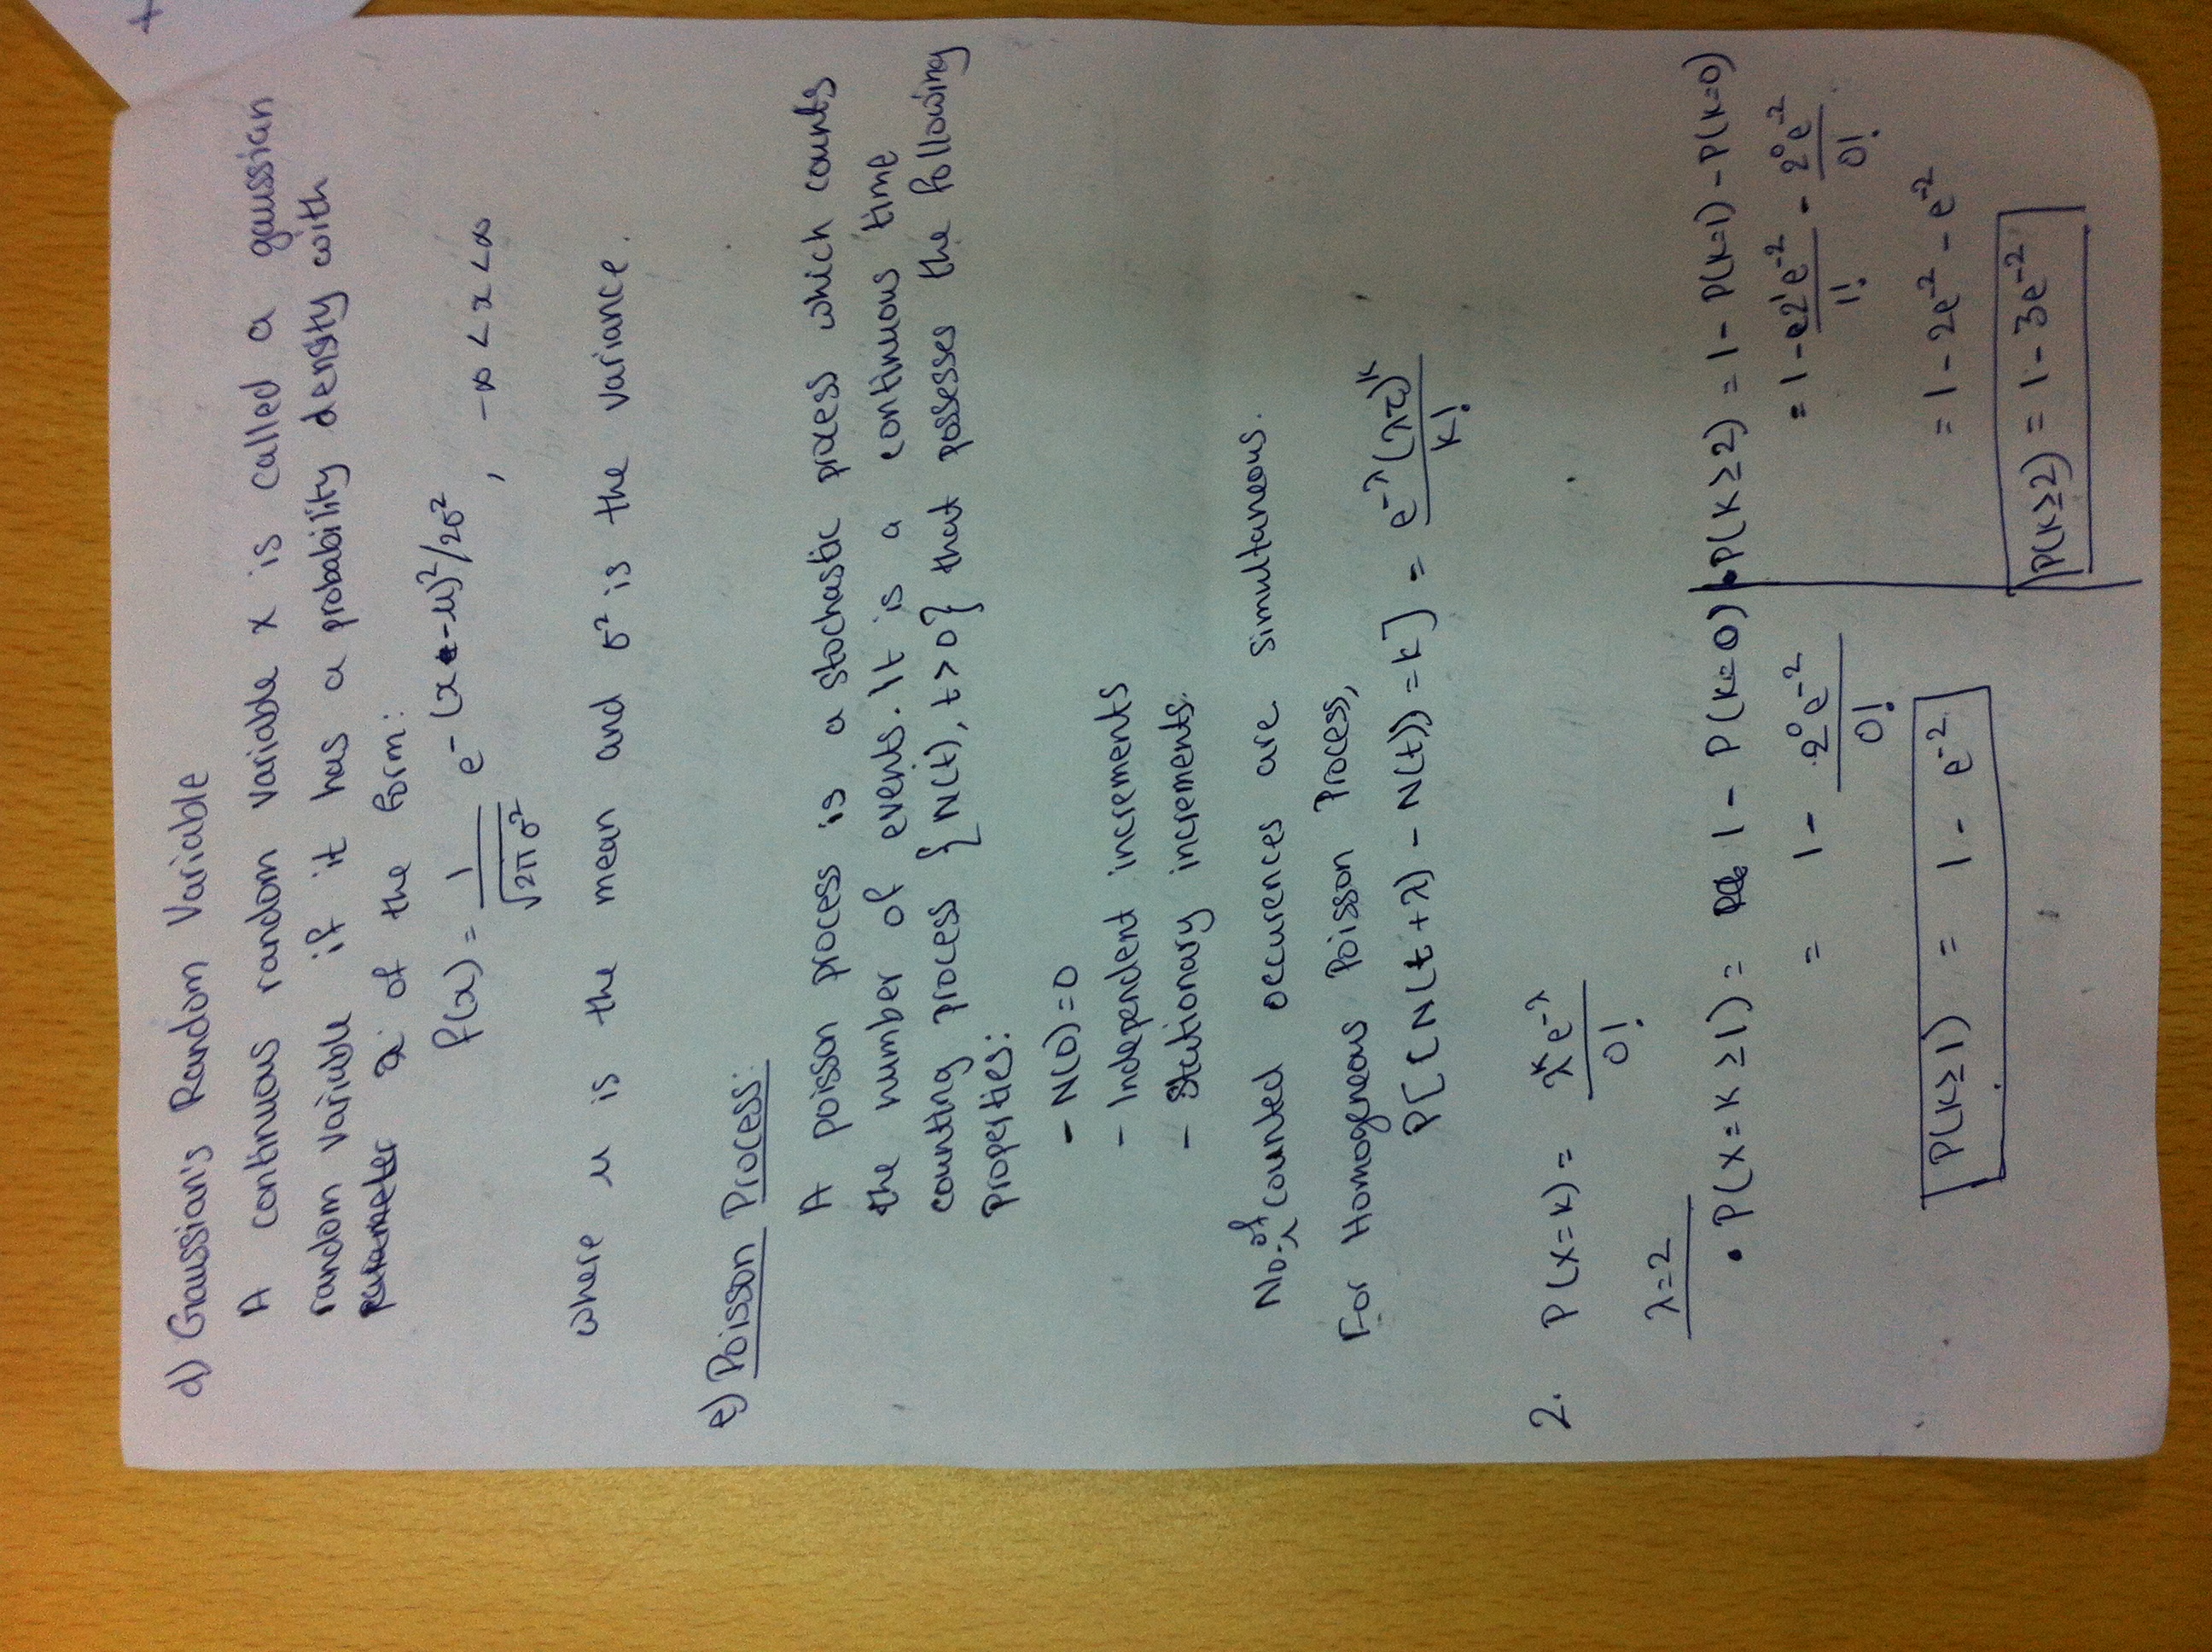 d) Gaussian's Random Variable
A continuous random variable x is called a gaussian
random variable if it has a probability density with
parameter of the form:
f(x) = 1/√2πσ² e^-(x-μ)²/2σ² , -∞ < x < ∞
where μ is the mean and σ² is the variance.
e) Poisson Process:
A poisson process is a stochastic process which counts
the number of events. It is a continuous time
counting process {N(t), t>0} that possesses the following
properties:
- N(0)=0
- Independent increments
- Stationary increments.
No. of counted occurences are simultaneous.
For Homogeneous Poisson Process,
P[(N(t+λ) - N(t)) = k] = e^-λ(λτ)^k / k!
2. P(X=k) = λ^k e^-λ / 0!
λ=2
• P(X=K≥1) = 1 - P(K=0)
= 1 - 2⁰e⁻² / 0!
P(K≥1) = 1 - e⁻²
• P(K≥2) = 1 - P(K=1) - P(K=0)
= 1 - e2¹e⁻² / 1! - 2⁰e⁻² / 0!
= 1 - 2e⁻² - e⁻²
P(K≥2) = 1 - 3e⁻²